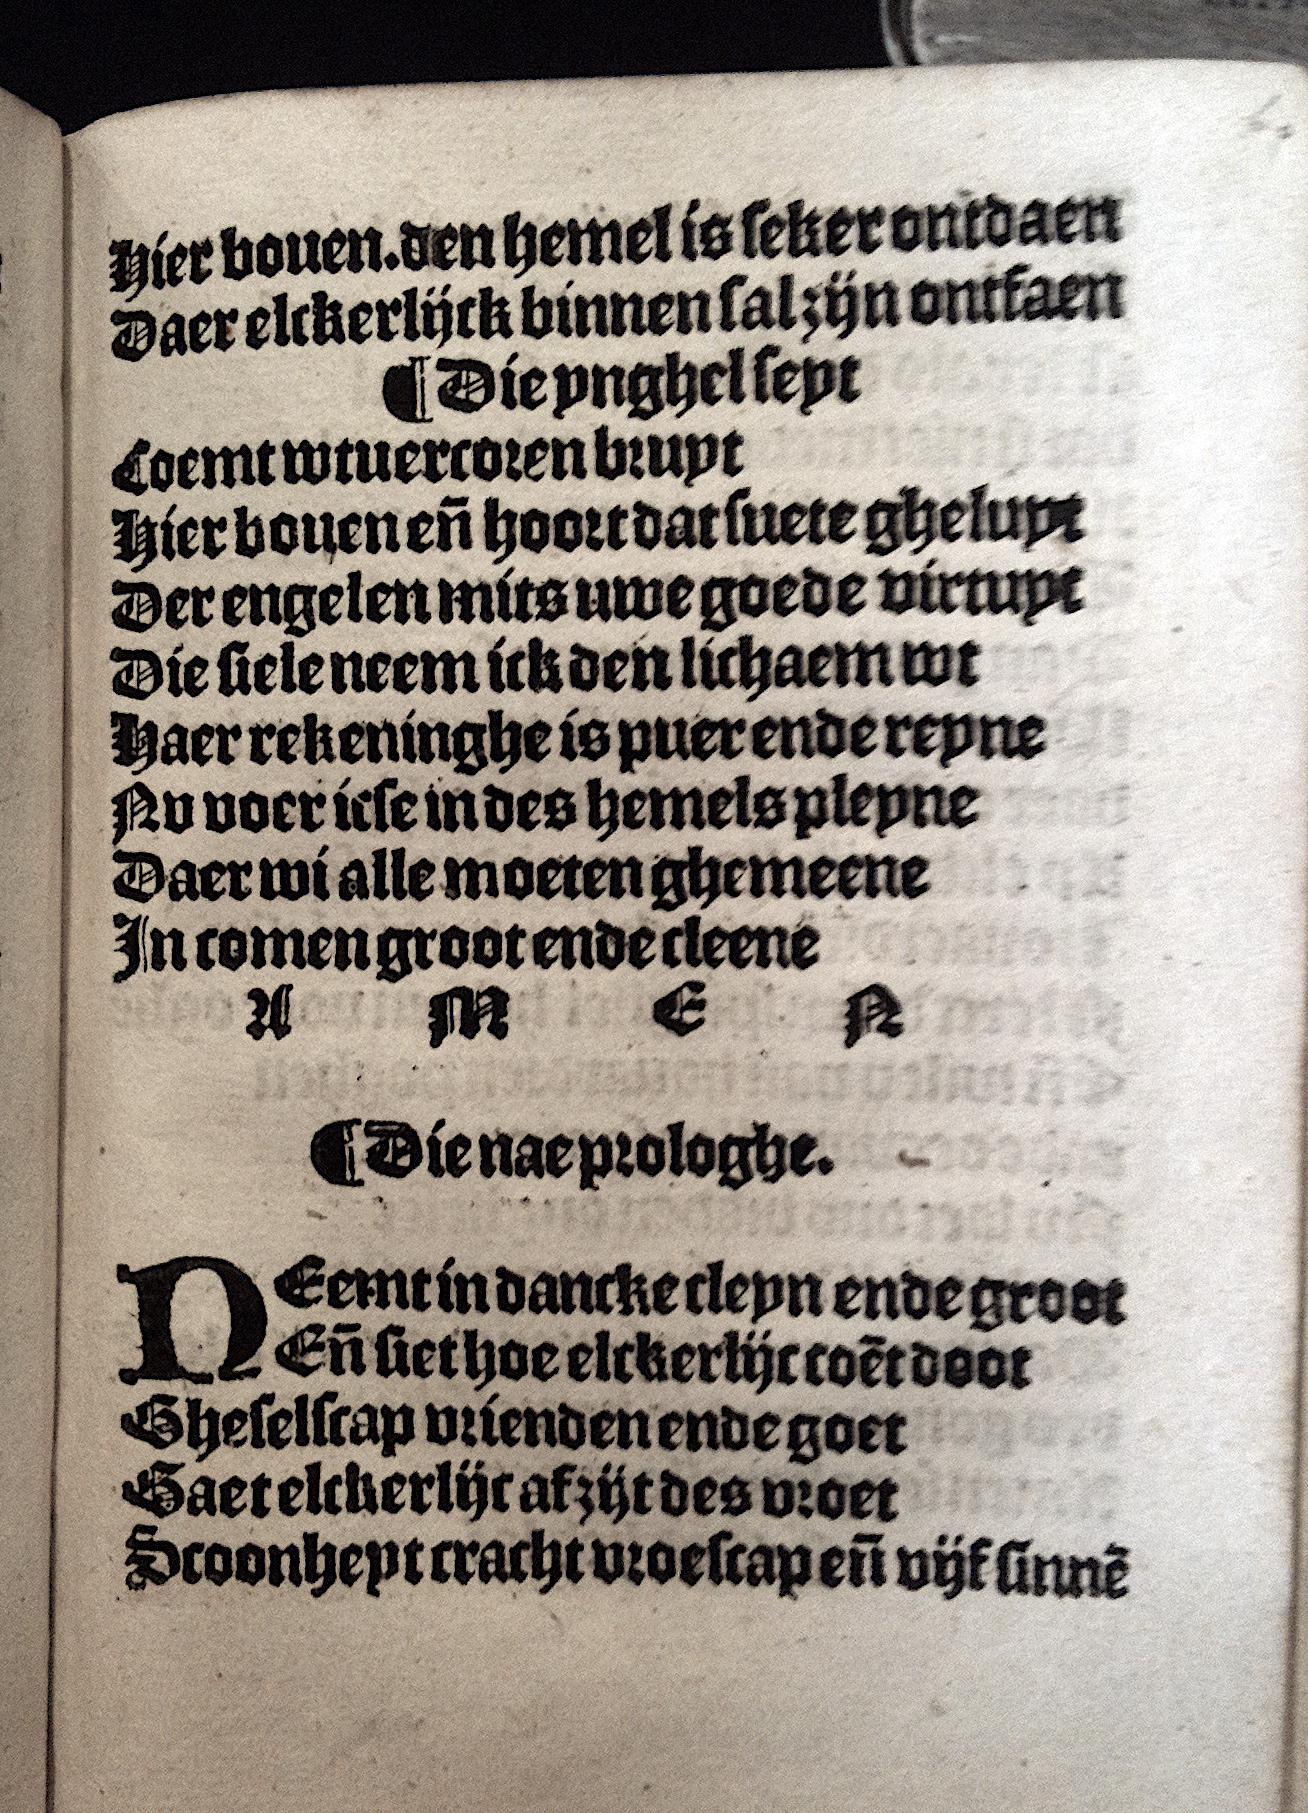 Hier bouen.den hemel is seker ontdaen
Daer elckerlijck binnen sal zijn ontfaen
¶ Die ynghel seyt
Coemt wtuercoren bruyt
Hier bouen en̄ hoort dat suete gheluyt
Der engelen mits uwe goede virtuyt
Die siele neem ick den lichaem wt
Haer rekeninghe is puer ende reyne
Nv voer icse in des hemels pleyne
Daer wi alle moeten ghemeene
In comen groot ende cleene
A M E N
¶ Die nae prologhe.
NEemt in dancke cleyn ende groot
En̄ siet hoe elckerlijc coēt doot
Gheselscap vrienden ende goet
Gaet elckerlijc af zijt des vroet
Scoonheyt cracht vroescap en̄ vijf sinnē